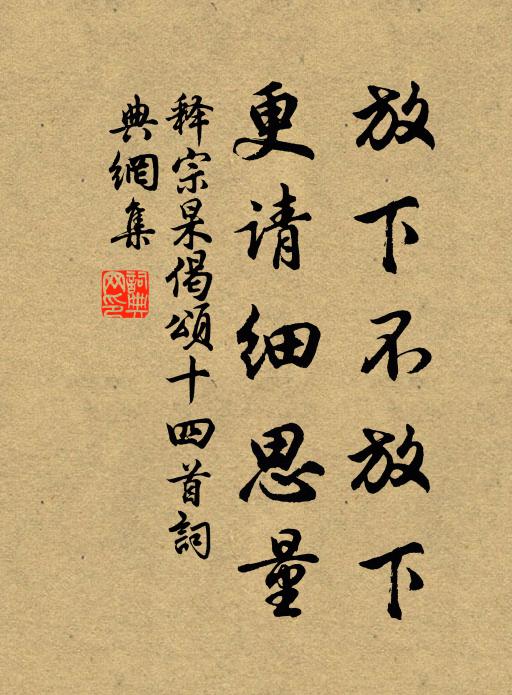 放下不放下
更请细思量
释宗杲偈頌十四首詞
典網集
詞典网印